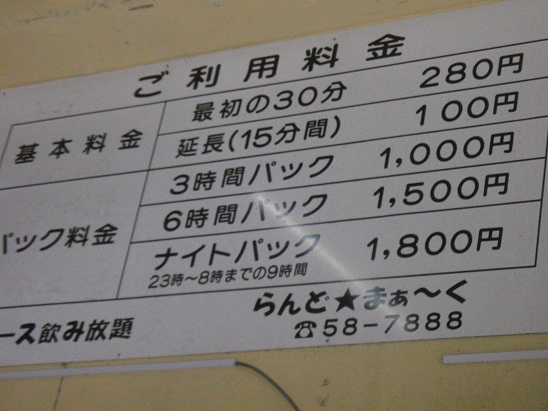 ご利用料金
基本料金
最初の30分 280円
延長(15分間) 100円
パック料金
3時間パック 1,000円
6時間パック 1,500円
ナイトパック 1,800円
23時～8時までの9時間
らんど★まぁ～く
ース飲み放題
☎58-7888